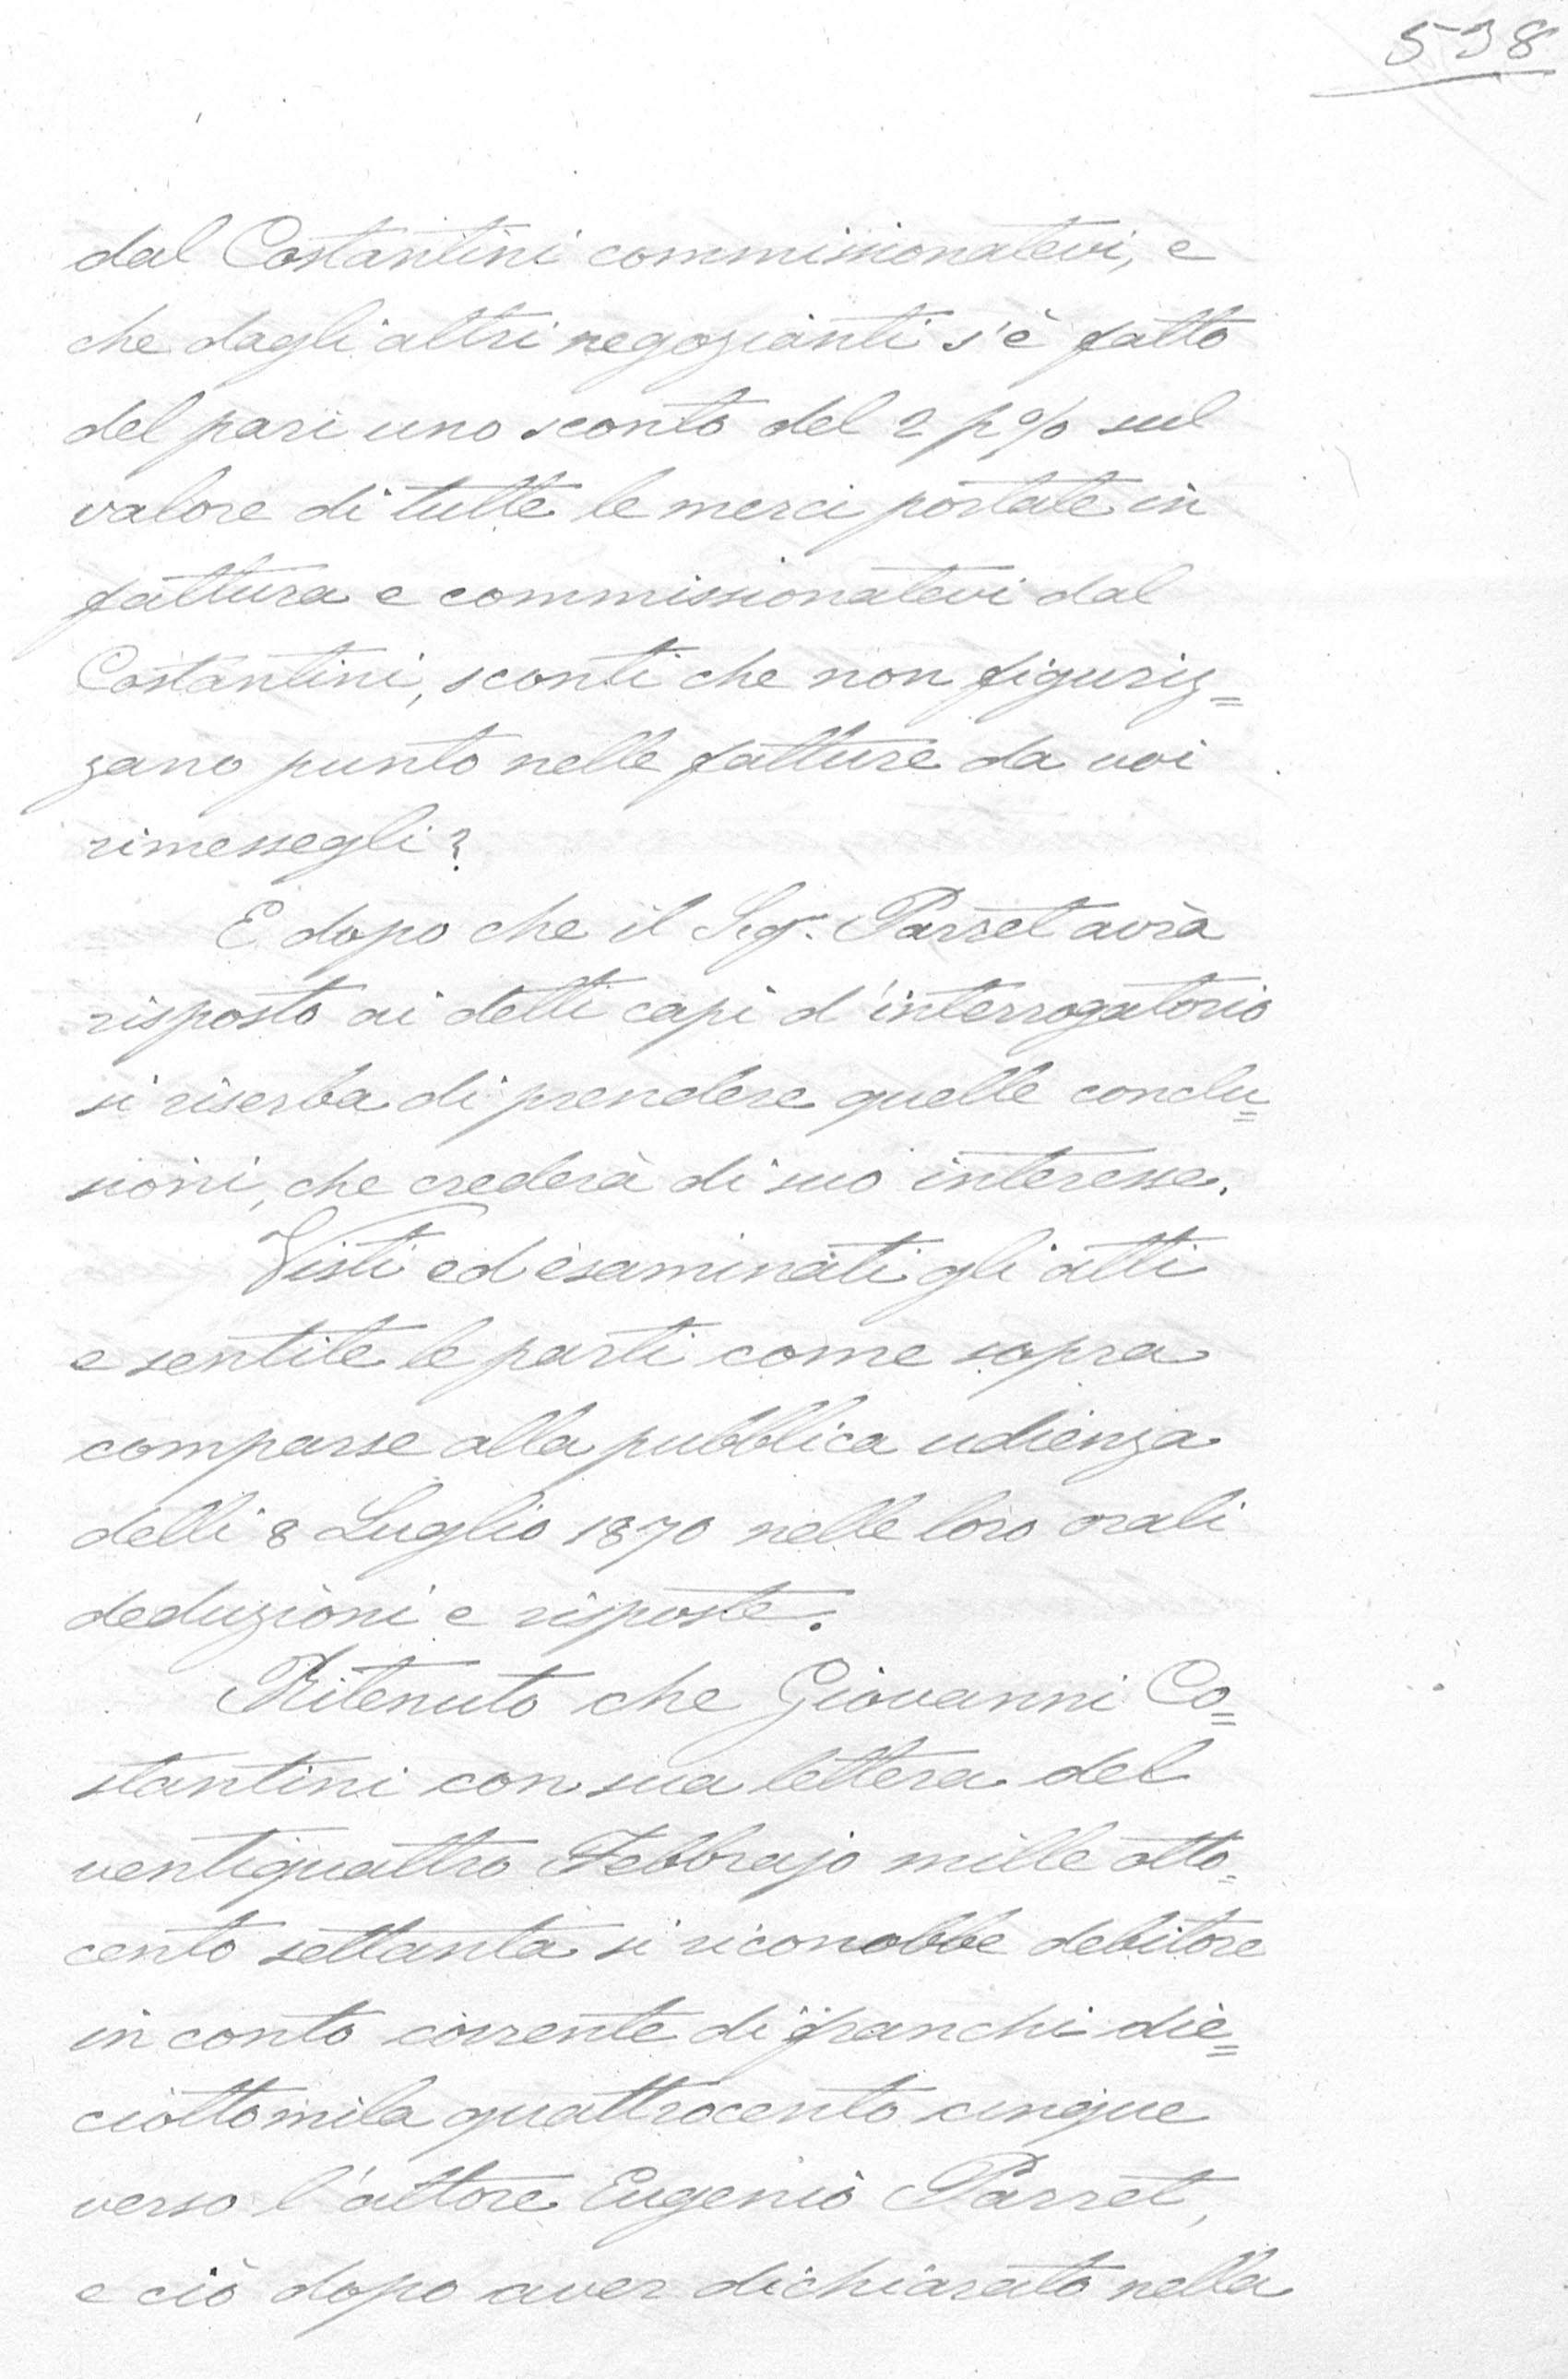 538
dal Costantini commissionatevi, e
che dagli altri negozianti s'è fatto
del pari uno sconto del 2 p% sul
valore di tutte le merci portate in
fattura e commissionatevi dal
Costantini, sconti che non figuriz=
zano punto nelle fatture da voi
rimessegli?
E dopo che il Sig. Parret avrà
risposto ai detti capi d'interrogatorio
si riserba di prendere quelle conclu=
sioni, che crederà di suo interesse.
Visti ed esaminati gli atti
e sentite le parti come sopra
comparse alla pubblica udienza
delli 8 Luglio 1870 nelle loro orali
deduzioni e risposte.
Ritenuto che Giovanni Co=
stantini con sua lettera del
ventiquattro Febbrajo mille otto=
cento settanta si riconobbe debitore
in conto corrente di franchi die=
ciottomila quattrocento cinque
verso l'attore Eugenio Parret,
e ciò dopo aver dichiarato nella